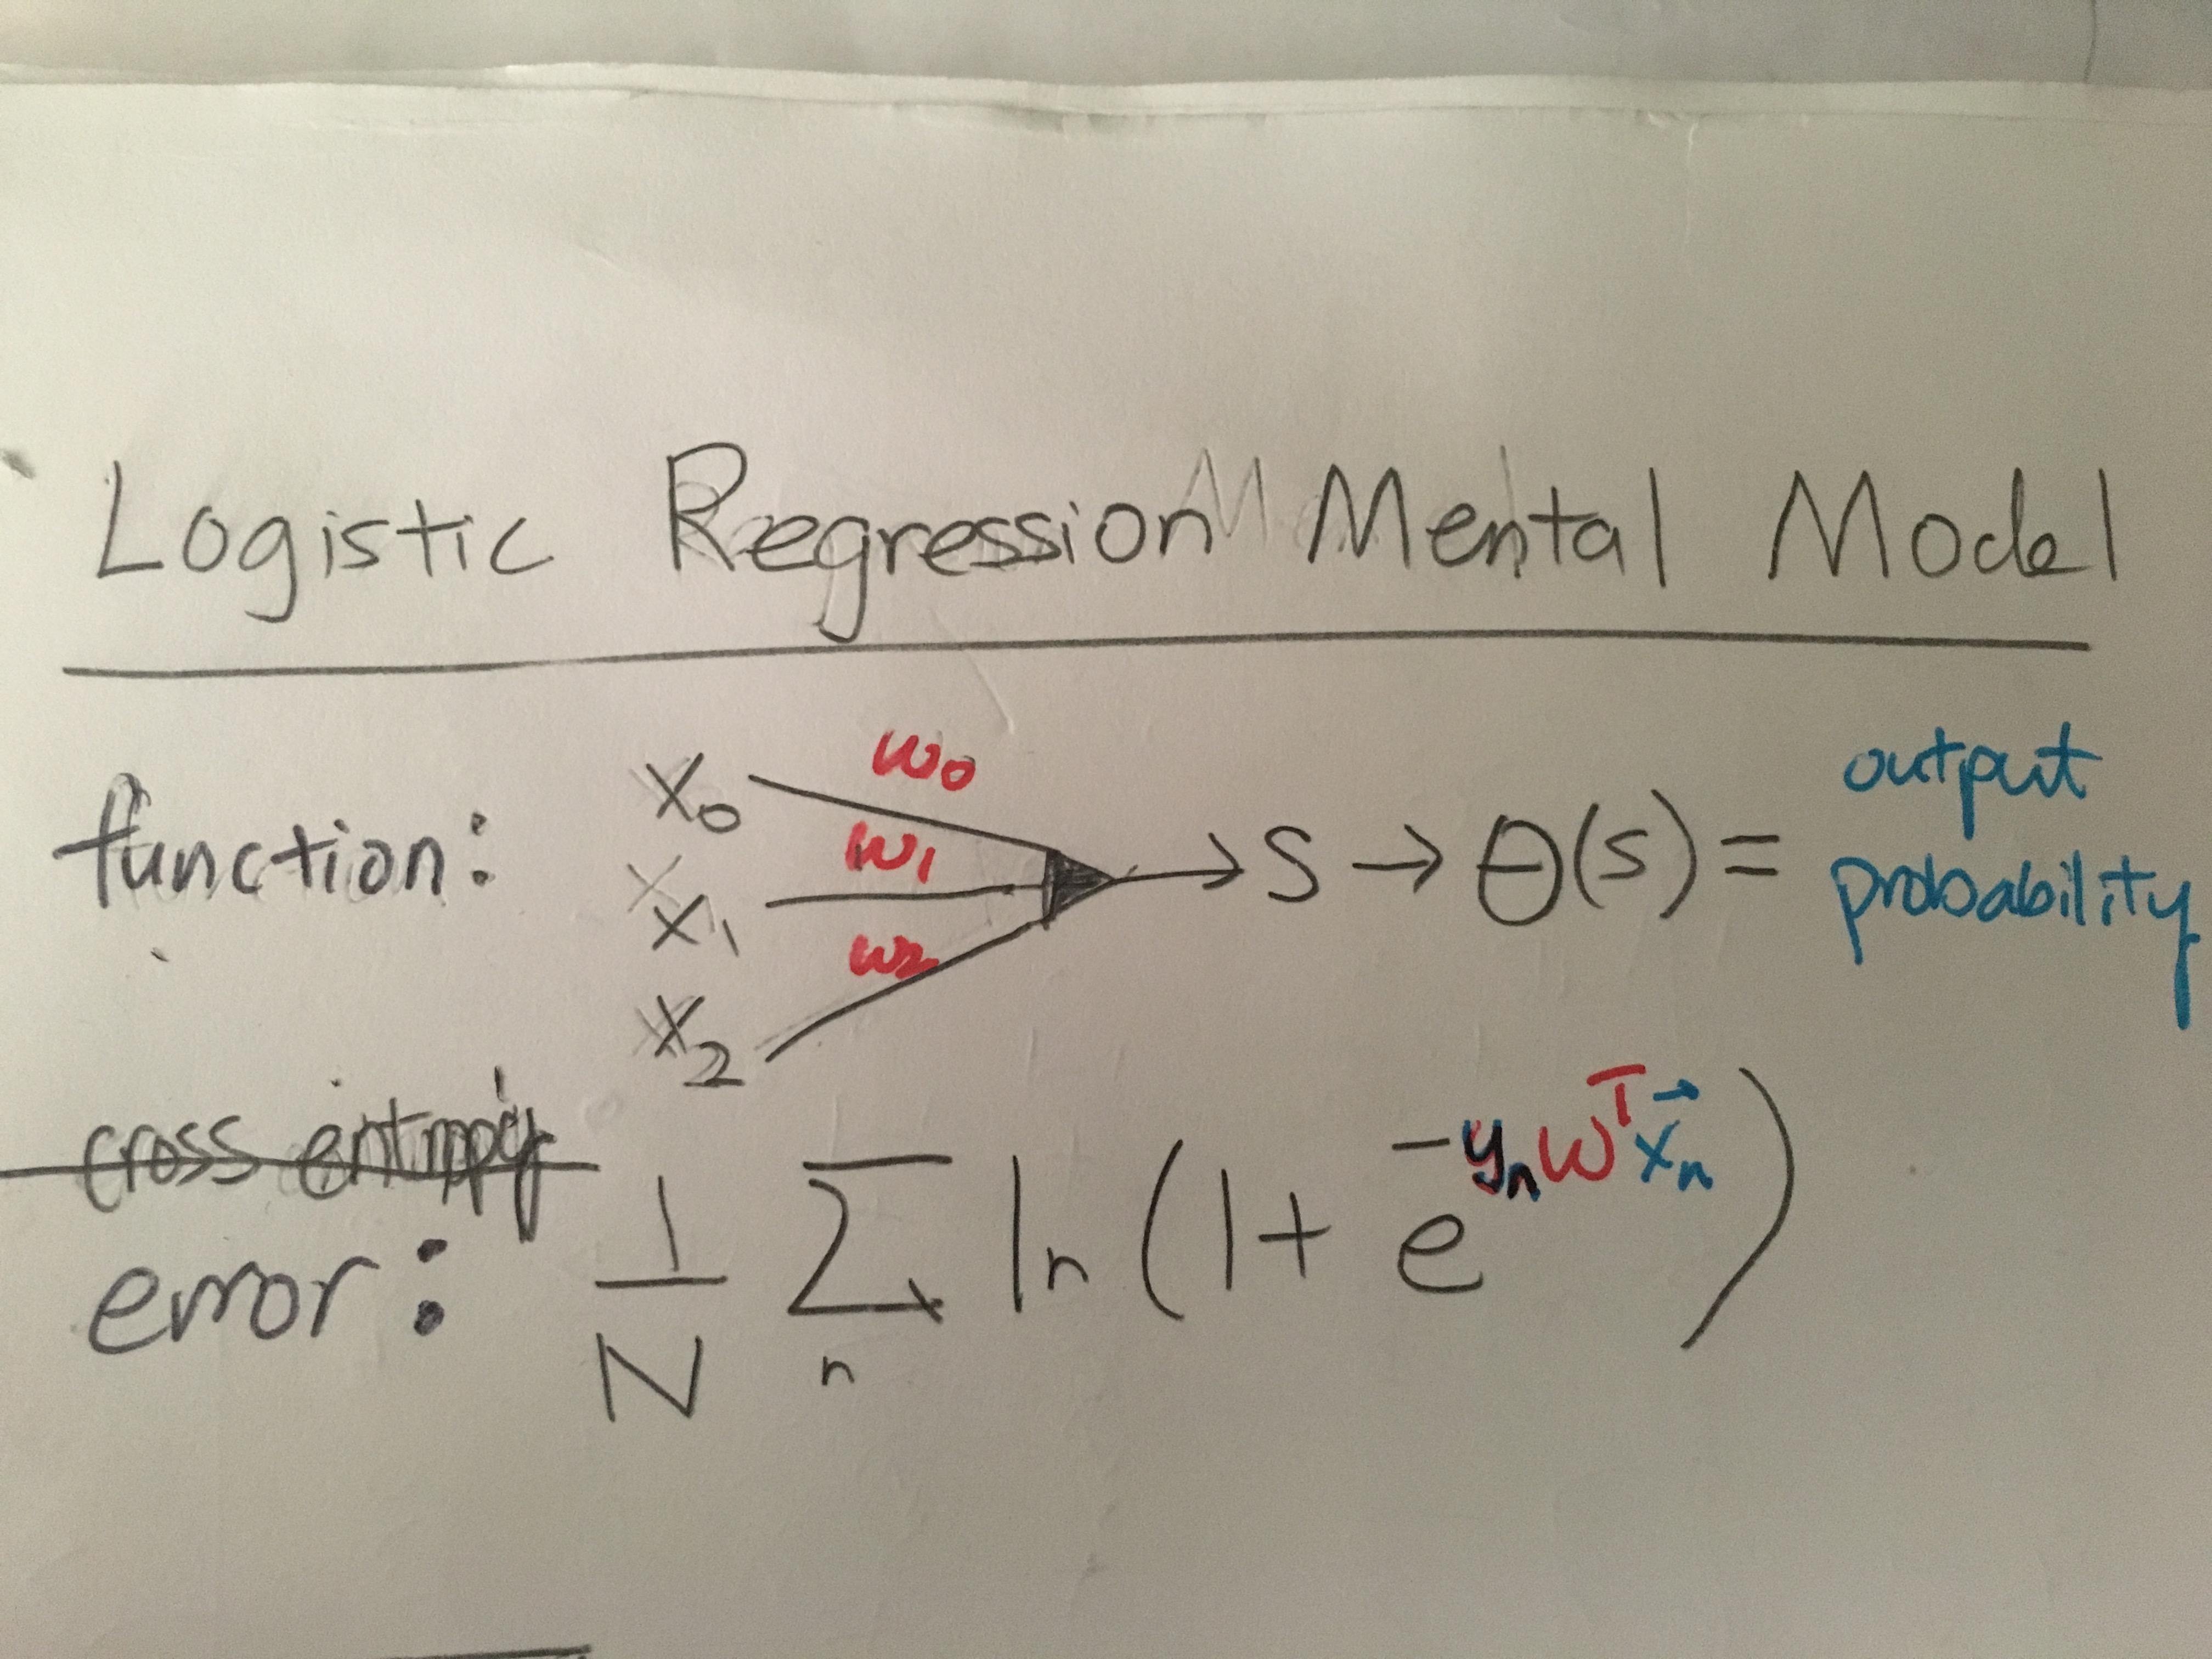 Logistic Regression Mental Model
function: x₀ w₀ x₁ w₁ x₂ w₂ → S → θ(s) = output probability
cross entropy
error: 1/N Σₙ ln(1 + e^(-yₙ w^T x⃗ₙ))